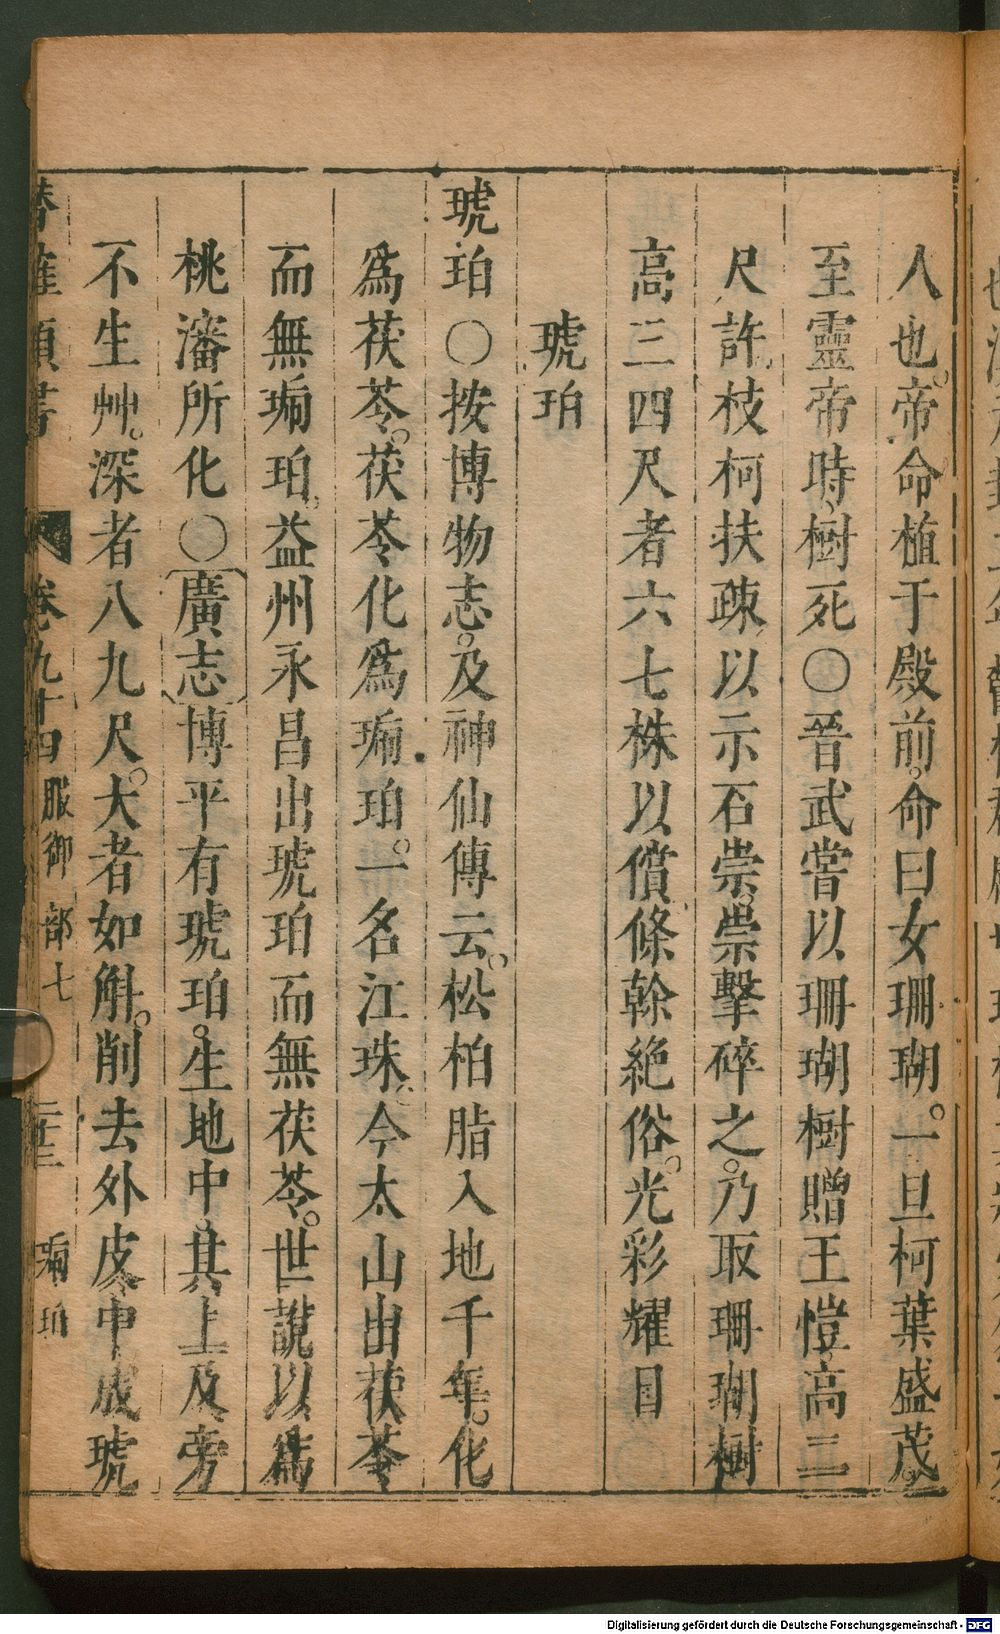 人也帝命植于殿前命曰女珊瑚一旦柯葉盛茂
至靈帝時樹死〇晉武嘗以珊瑚樹贈王愷高二
尺許枝柯扶疎以示石崇崇擊碎之乃取珊瑚樹
高三四尺者六七株以償條幹絶俗光彩耀目
琥珀
琥珀〇按博物志及神仙傳云松柏脂入地千年化
爲茯苓茯苓化爲琥珀一名江珠今太山出茯苓
而無琥珀益州永昌出琥珀而無茯苓世說以爲
桃瀋所化〇廣志博平有琥珀生地中其上及旁
不生艸深者八九尺大者如斛削去外皮中成琥
類書 卷九十四 服御部七 琥珀
Digitalisierung gefördert durch die Deutsche Forschungsgemeinschaft - DFG